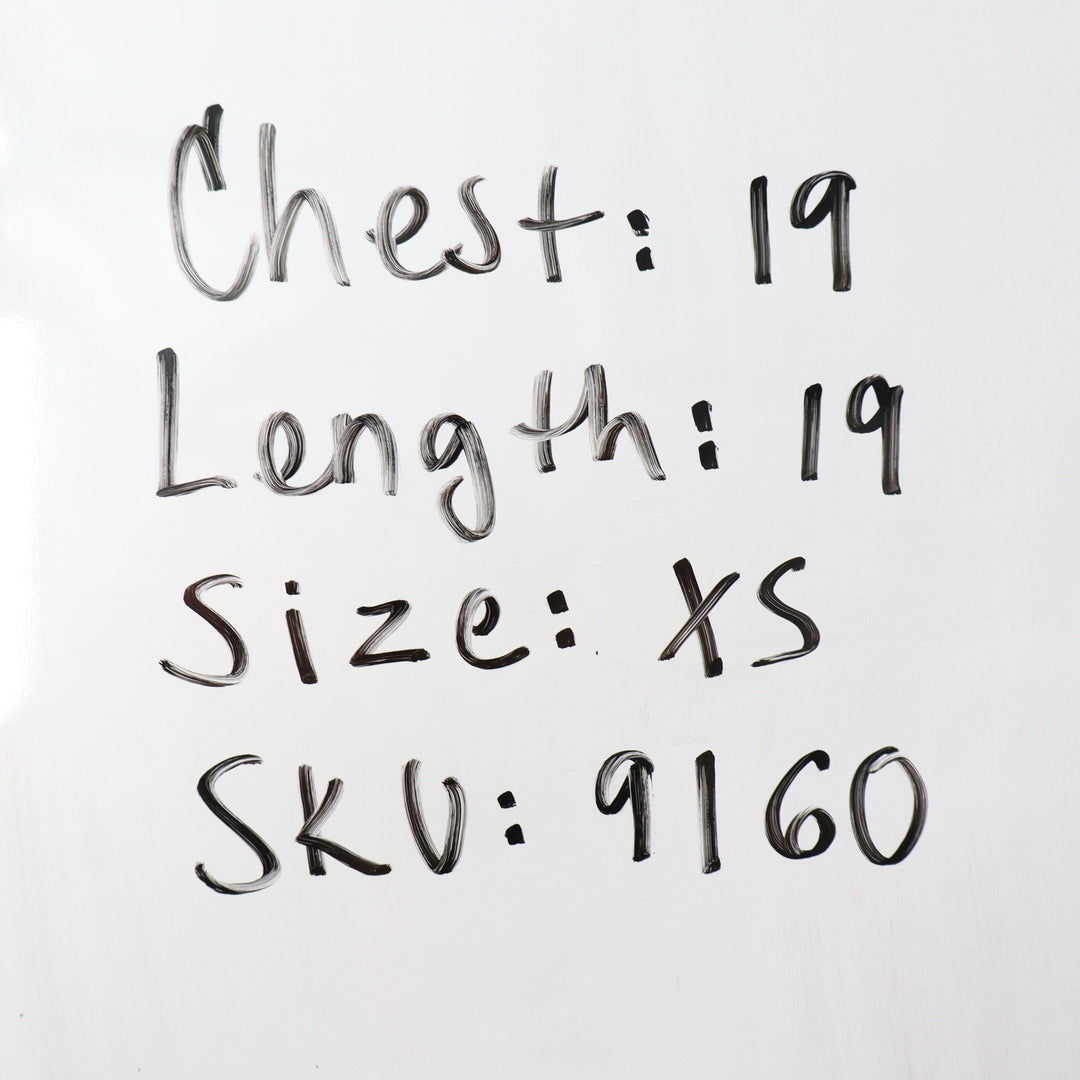 Chest: 19
Length: 19
Size: XS
SKU: 9160